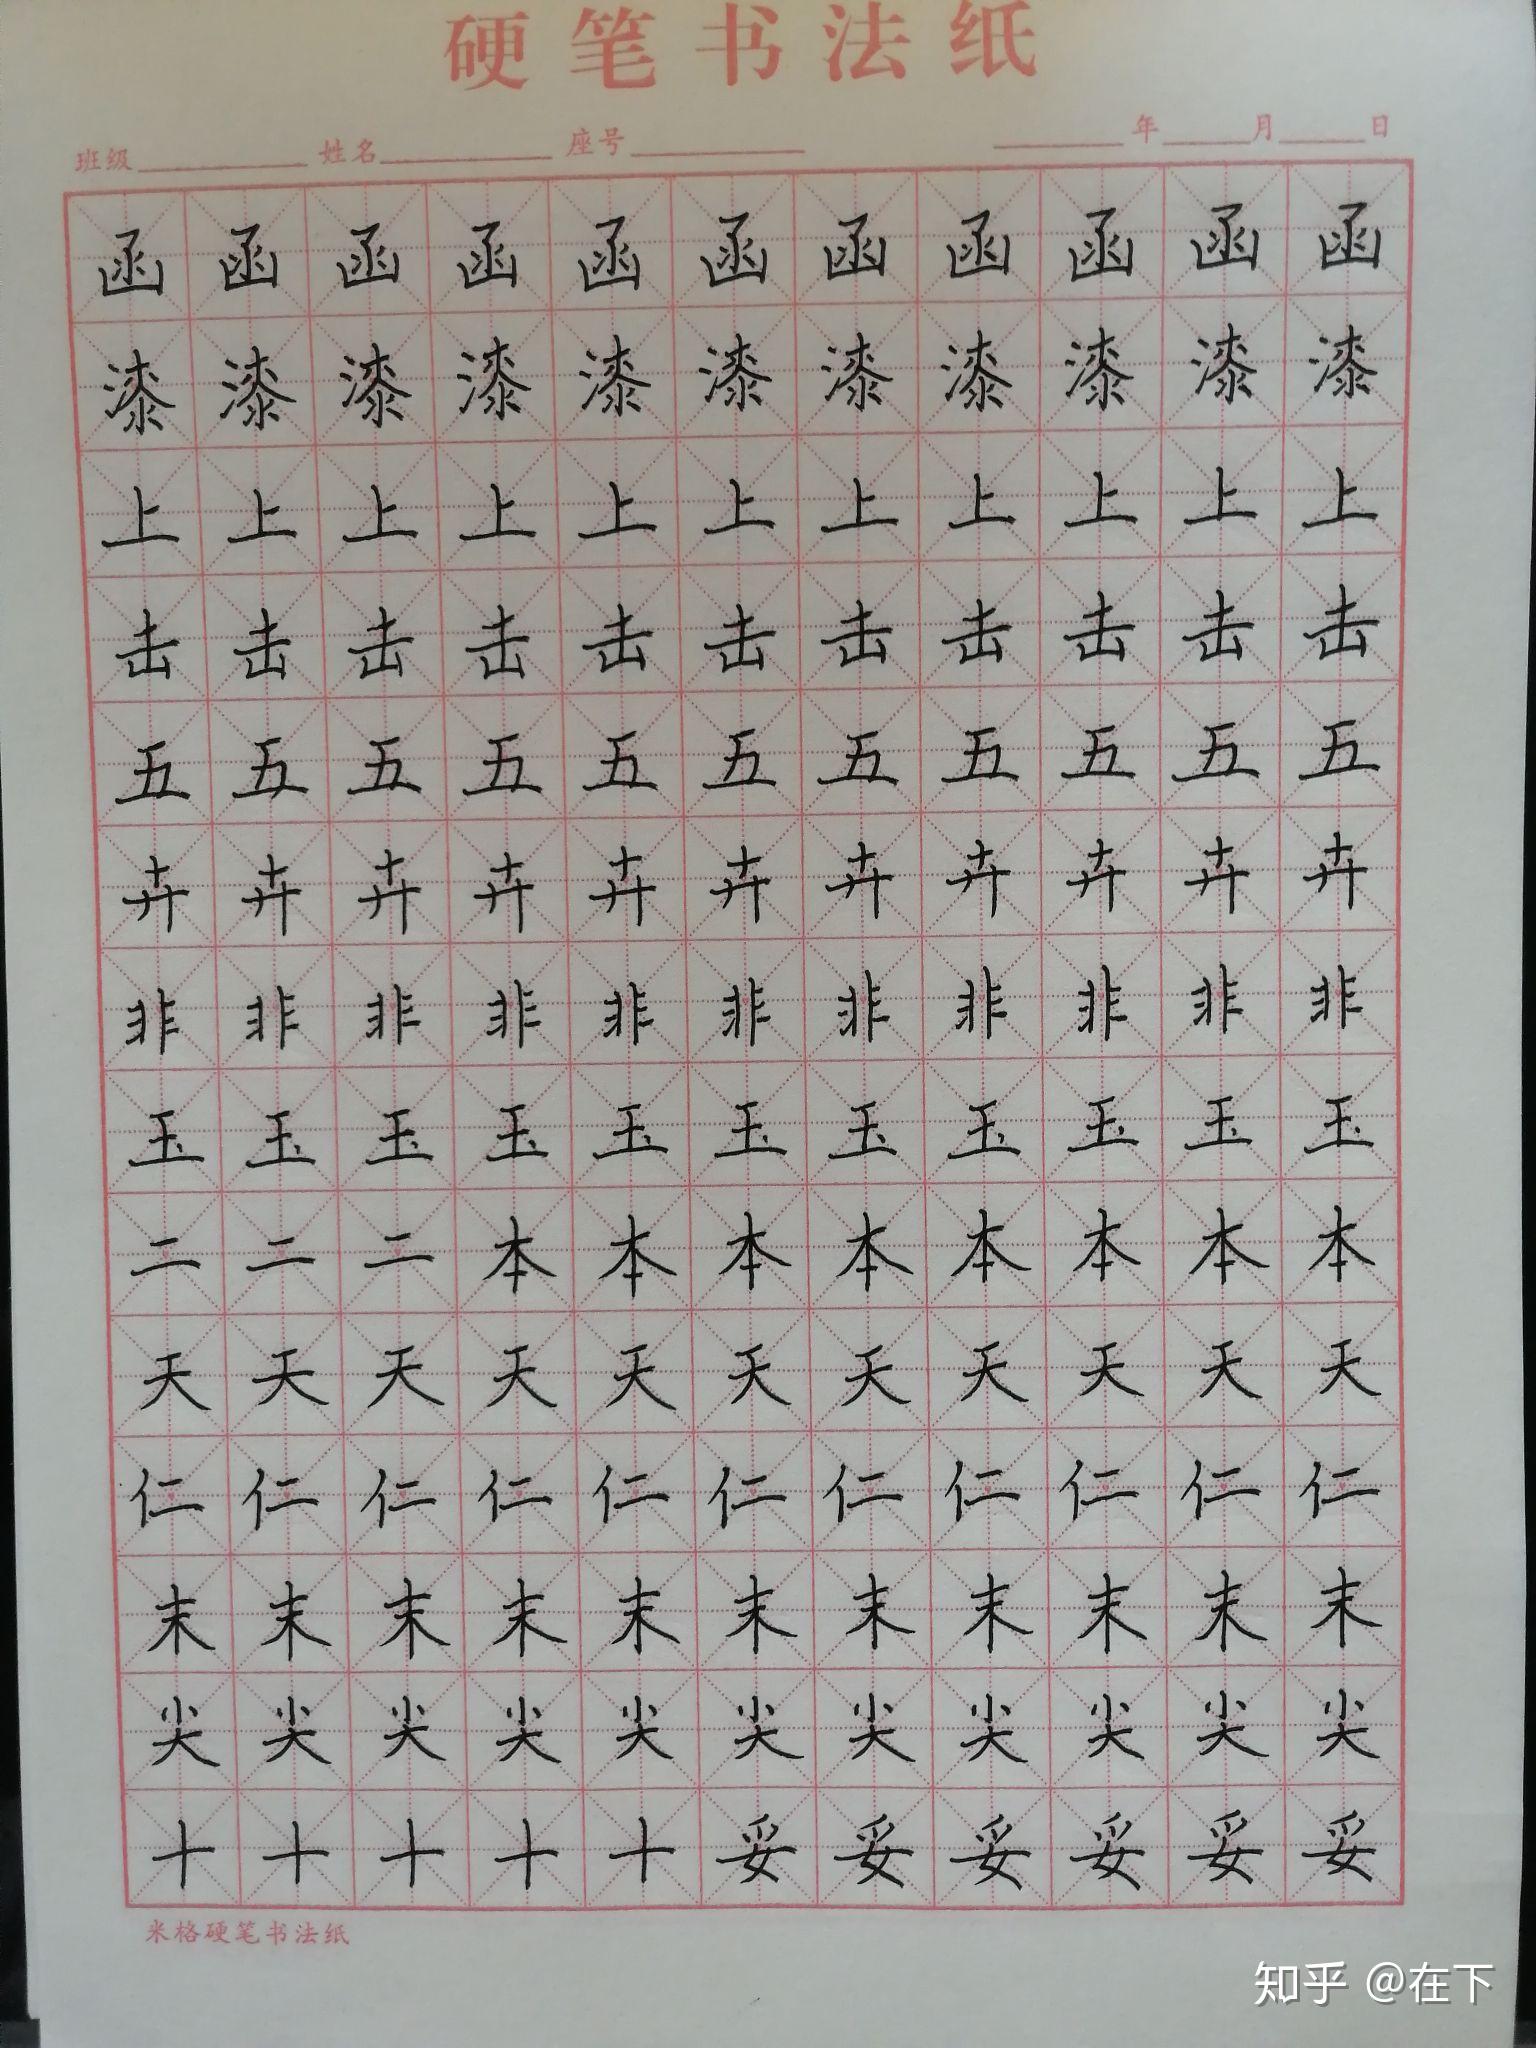 硬笔书法纸
班级 姓名 座号 年 月 日
函函函函函函函函函函函
漆漆漆漆漆漆漆漆漆漆漆
上上上上上上上上上上上
击击击击击击击击击击击
五五五五五五五五五五五
卉卉卉卉卉卉卉卉卉卉卉
非非非非非非非非非非非
玉玉玉玉玉玉玉玉玉玉玉
二二二本本本本本本本本
天天天天天天天天天天天
仁仁仁仁仁仁仁仁仁仁仁
末末末末末末末末末末末
尖尖尖尖尖尖尖尖尖尖尖
十十十十十妥妥妥妥妥妥
米格硬笔书法纸
知乎 @在下